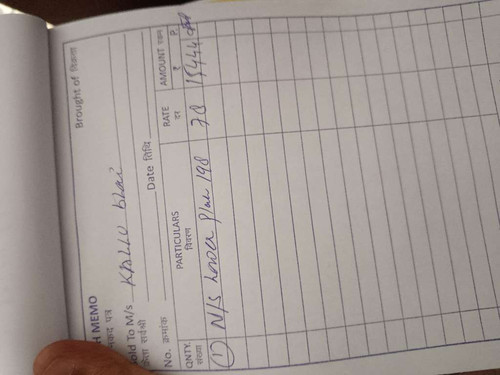 Brought of विक्रेता
H MEMO
नकद पत्र
old To M/s Kallu bhai
क्रेता सर्वश्री
No. क्रमांक Date तिथि
QNTY. PARTICULARS RATE AMOUNT रकम
संख्या विवरण दर ₹ P.
(1) N/S Plai 198 78 15444